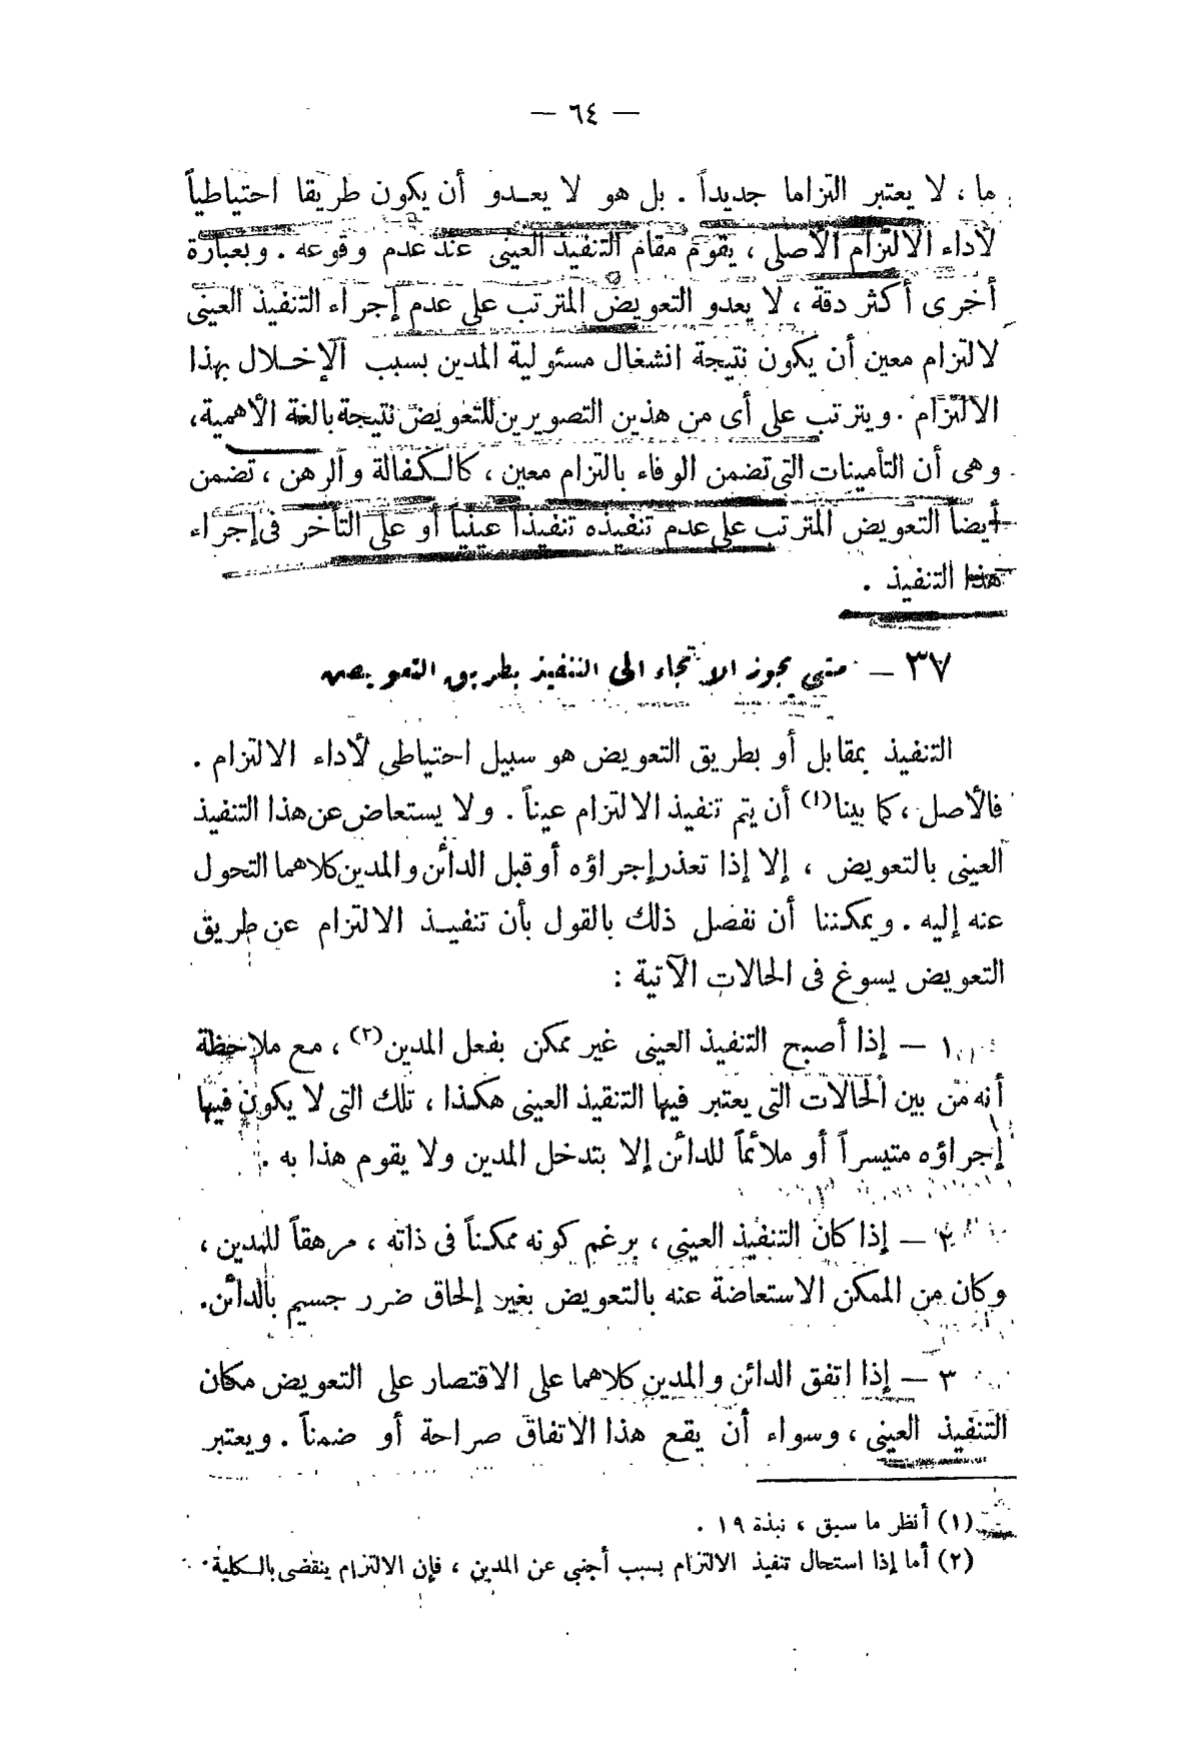 — ٦٤ —
ما ، لا يعتبر التزاما جديداً . بل هو لا يعدو أن يكون طريقا احتياطياً
لأداء الالتزام الأصلى ، يقوم مقام التنفيذ العينى عند عدم وقوعه . وبعبارة
أخرى أكثر دقة ، لا يعدو التعويض المترتب على عدم إجراء التنفيذ العينى
لالتزام معين أن يكون نتيجة انشغال مسئولية المدين بسبب الإخلال بهذا
الالتزام . ويترتب على أى من هذين التصويرين للتعويض نتيجة بالغة الأهمية،
وهى أن التأمينات التى تضمن الوفاء بالتزام معين ، كالكفالة والرهن ، تضمن
أيضاً التعويض المترتب على عدم تنفيذه تنفيذاً عينياً أو على التأخر فى إجراء
هذا التنفيذ .
٣٧ — متى يجوز الالتجاء الى التنفيذ بطريق التعويض
التنفيذ بمقابل أو بطريق التعويض هو سبيل احتياطى لأداء الالتزام .
فالأصل ، كما بينا (١) أن يتم تنفيذ الالتزام عيناً . ولا يستعاض عن هذا التنفيذ
العينى بالتعويض ، إلا إذا تعذر إجراؤه أو قبل الدائن والمدين كلاهما التحول
عنه إليه . ويمكننا أن نفصل ذلك بالقول بأن تنفيذ الالتزام عن طريق
التعويض يسوغ فى الحالات الآتية :
١ — إذا أصبح التنفيذ العينى غير ممكن بفعل المدين (٢) ، مع ملاحظة
أنه من بين الحالات التى يعتبر فيها التنفيذ العينى هكذا ، تلك التى لا يكون فيها
إجراؤه متيسراً أو ملائماً للدائن إلا بتدخل المدين ولا يقوم هذا به .
٢ — إذا كان التنفيذ العينى ، برغم كونه ممكناً فى ذاته ، مرهقاً للمدين ،
وكان من الممكن الاستعاضة عنه بالتعويض بغير إلحاق ضرر جسيم بالدائن.
٣ — إذا اتفق الدائن والمدين كلاهما على الاقتصار على التعويض مكان
التنفيذ العينى ، وسواء أن يقع هذا الاتفاق صراحة أو ضمناً . ويعتبر
(١) أنظر ما سبق ، نبذة ١٩ .
(٢) أما إذا استحال تنفيذ الالتزام بسبب أجنبى عن المدين ، فإن الالتزام ينقضى بالكلية .